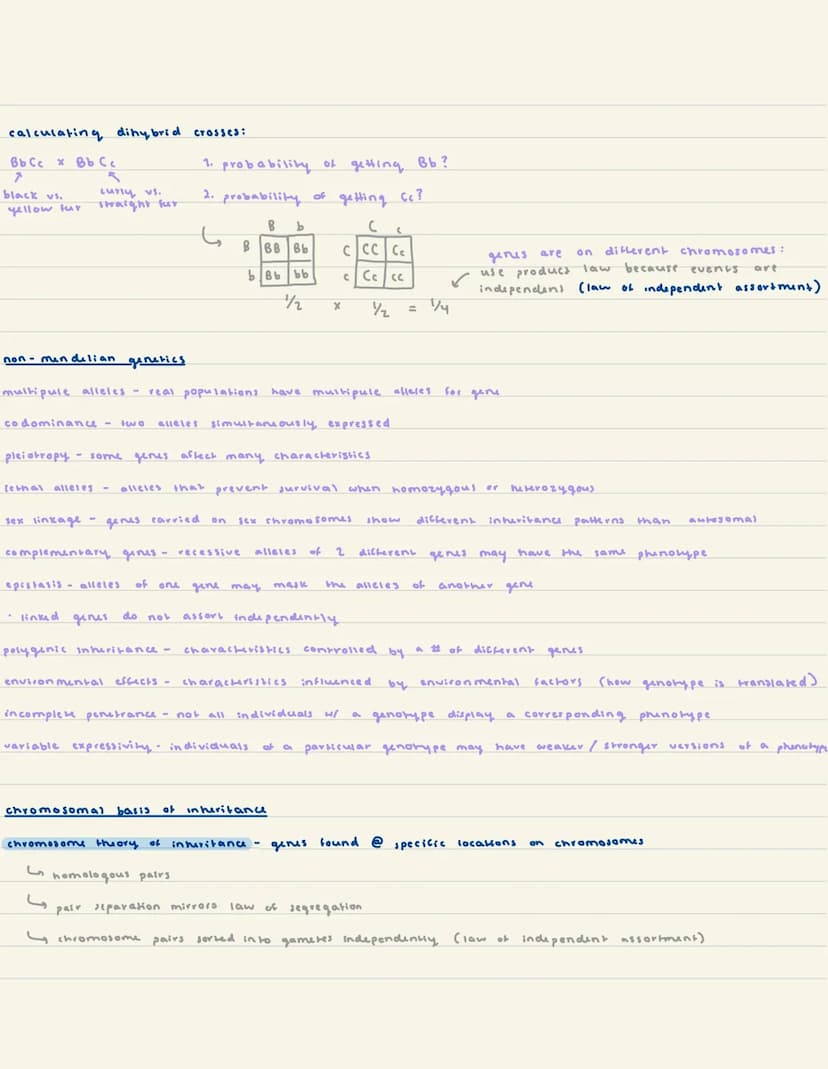 calculating dihybrid crosses:
BbCc x BbCc
1. probability of getting Bb?
black vs. yellow fur
curly vs. straight fur
2. probability of getting Cc?
B b
B BB Bb
b Bb bb
C c
C CC Cc
c Cc cc
1/2 x 1/2 = 1/4
genes are on different chromosomes:
use product law because events are
independent (law of independent assortment)
non-mendelian genetics
multipule alleles - real populations have multipule alleles for gene
codominance - two alleles simultaneously expressed
pleiotropy - some genes affect many characteristics
lethal alleles - alleles that prevent survival when homozygous or heterozygous
sex linkage - genes carried on sex chromosomes show different inheritance patterns than autosomal
complementary genes - recessive alleles of 2 different genes may have the same phenotype
epistasis - alleles of one gene may mask the alleles of another gene
· linked genes do not assort independently
polygenic inheritance - characteristics controlled by a # of different genes
environmental effects - characteristics influenced by environmental factors (how genotype is translated)
incomplete penetrance - not all individuals w/ a genotype display a corresponding phenotype
variable expressivity - individuals of a particular genotype may have weaker / stronger versions of a phenotype
chromosomal basis of inheritance
chromosome theory of inheritance - genes found @ specific locations on chromosomes
↳ homologous pairs
↳ pair separation mirrors law of segregation
↳ chromosome pairs sorted into gametes independently (law of independent assortment)